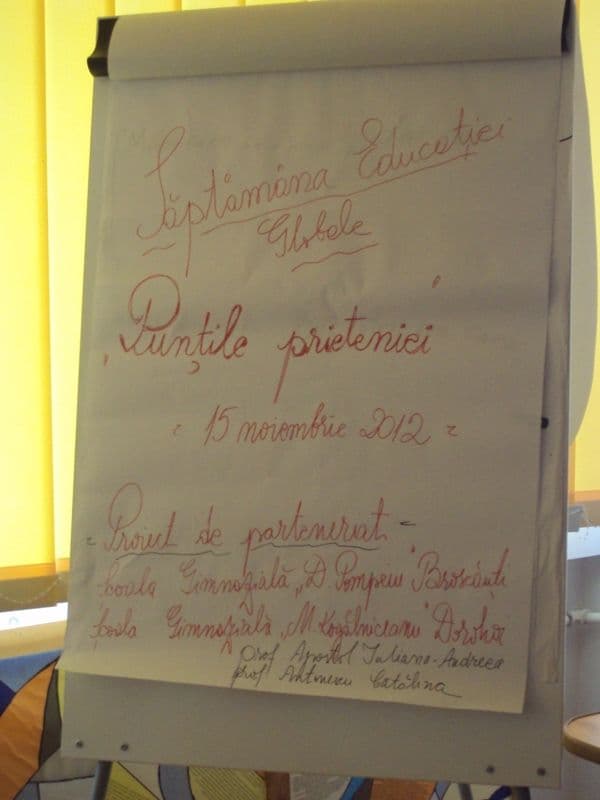 Săptămâna Educației
Globale
„Punțile prieteniei”
- 15 noiembrie 2012 -
- Proiect de parteneriat -
Școala Gimnazială „D. Pompeiu” Broscăuți
Școala Gimnazială „M. Kogălniceanu” Dorohoi
prof. Apostol Iuliana-Andreea
prof. Antonescu Cătălina